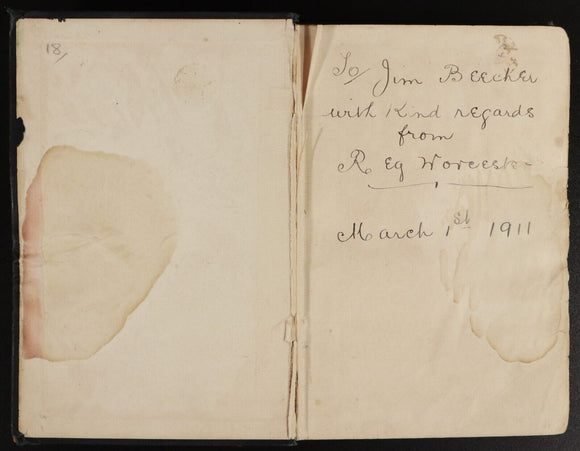 18/
To Jim Beecker
with Kind regards
from
Reg Worcester
March 1st 1911